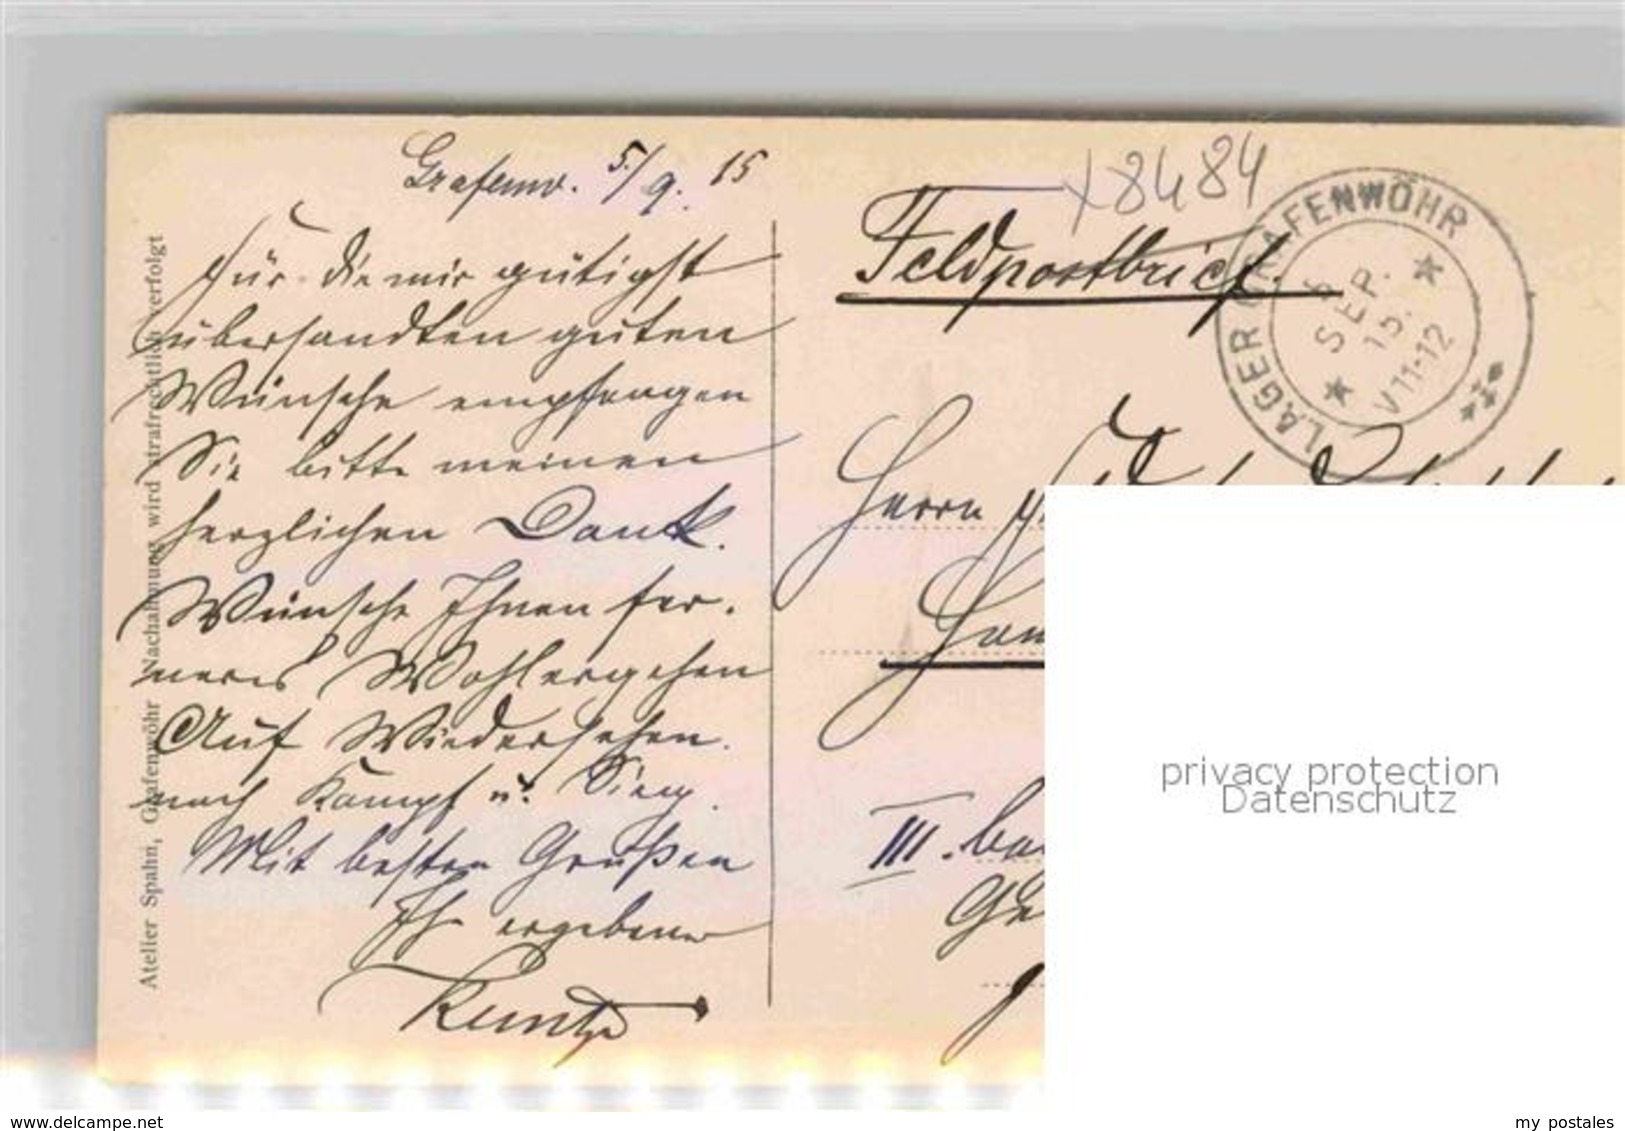 Grafenw. 5./9. 15
Für die mir gütigst
übersandten guten
Wünsche empfangen
Sie bitte meinen
herzlichen Dank.
Wünsche Ihnen fer-
neres Wohlergehen
Auf Wiedersehen.
nach Kampf u. Sieg.
Mit besten Grüßen
Ihr ergebener
Kuntze
Atelier Spahn, Grafenwöhr Nachahmung wird strafrechtlich verfolgt
x8484
Feldpostbrief.
LAGER GRAFENWÖHR
SEP.
15.
V 11-12
Herrn
III.
privacy protection
Datenschutz
www.delcampe.net
my postales